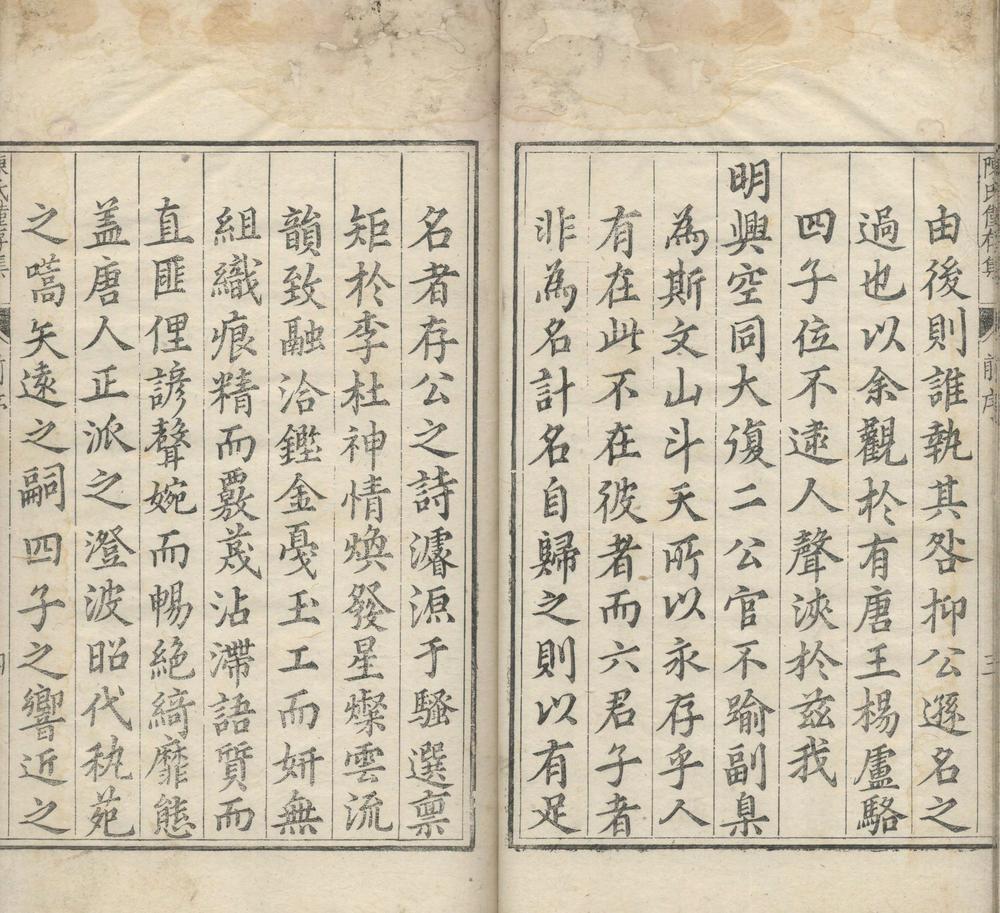 由後則誰執其咎抑公遜名之
過也以余觀於有唐王楊盧駱
四子位不逮人聲浹於茲我
明興空同大復二公官不踰副臬
為斯文山斗天所以永存乎人
有在此不在彼者而六君子者
非為名計名自歸之則以有足
名者存公之詩濬源于騷選稟
矩於李杜神情煥發星燦雲流
韻致融洽鏗金戞玉工而妍無
組織痕精而覈蔑沾滯語質而
直匪俚諺聲婉而暢絕綺靡態
盖唐人正派之澄波昭代秇苑
之嚆矢遠之嗣四子之響近之